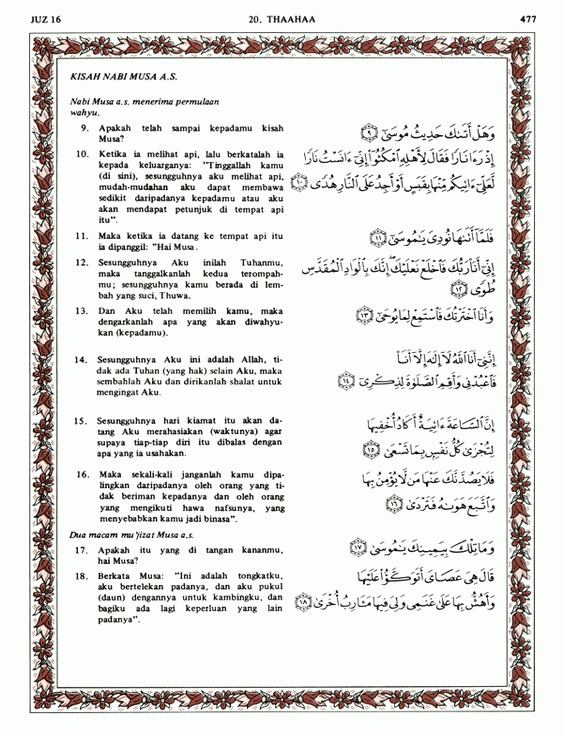 JUZ 16
20. THAAHAA
477
KISAH NABI MUSA A.S.
Nabi Musa a.s. menerima permulaan
wahyu.
9. Apakah telah sampai kepadamu kisah
Musa?
وَهَلْ أَتَىٰكَ حَدِيثُ مُوسَىٰٓ ﴿٩﴾
10. Ketika ia melihat api, lalu berkatalah ia
kepada keluarganya: "Tinggallah kamu
(di sini), sesungguhnya aku melihat api,
mudah-mudahan aku dapat membawa
sedikit daripadanya kepadamu atau aku
akan mendapat petunjuk di tempat api
itu".
إِذْ رَءَا نَارًا فَقَالَ لِأَهْلِهِ ٱمْكُثُوٓا۟ إِنِّىٓ ءَانَسْتُ نَارًا
لَّعَلِّىٓ ءَاتِيكُم مِّنْهَا بِقَبَسٍ أَوْ أَجِدُ عَلَى ٱلنَّارِ هُدًى ﴿١٠﴾
11. Maka ketika ia datang ke tempat api itu
ia dipanggil: "Hai Musa.
فَلَمَّآ أَتَىٰهَا نُودِىَ يَـٰمُوسَىٰٓ ﴿١١﴾
12. Sesungguhnya Aku inilah Tuhanmu,
maka tanggalkanlah kedua terompah-
mu; sesungguhnya kamu berada di lem-
bah yang suci, Thuwa.
إِنِّىٓ أَنَا۠ رَبُّكَ فَٱخْلَعْ نَعْلَيْكَ إِنَّكَ بِٱلْوَادِ ٱلْمُقَدَّسِ
طُوًى ﴿١٢﴾
13. Dan Aku telah memilih kamu, maka
dengarkanlah apa yang akan diwahyu-
kan (kepadamu).
وَأَنَا ٱخْتَرْتُكَ فَٱسْتَمِعْ لِمَا يُوحَىٰٓ ﴿١٣﴾
14. Sesungguhnya Aku ini adalah Allah, ti-
dak ada Tuhan (yang hak) selain Aku, maka
sembahlah Aku dan dirikanlah shalat untuk
mengingat Aku.
إِنَّنِىٓ أَنَا ٱللَّهُ لَآ إِلَـٰهَ إِلَّآ أَنَا۠
فَٱعْبُدْنِى وَأَقِمِ ٱلصَّلَوٰةَ لِذِكْرِىٓ ﴿١٤﴾
15. Sesungguhnya hari kiamat itu akan da-
tang Aku merahasiakan (waktunya) agar
supaya tiap-tiap diri itu dibalas dengan
apa yang ia usahakan.
إِنَّ ٱلسَّاعَةَ ءَاتِيَةٌ أَكَادُ أُخْفِيهَا
لِتُجْزَىٰ كُلُّ نَفْسٍۭ بِمَا تَسْعَىٰ ﴿١٥﴾
16. Maka sekali-kali janganlah kamu dipa-
lingkan daripadanya oleh orang yang ti-
dak beriman kepadanya dan oleh orang
yang mengikuti hawa nafsunya, yang
menyebabkan kamu jadi binasa".
فَلَا يَصُدَّنَّكَ عَنْهَا مَن لَّا يُؤْمِنُ بِهَا
وَٱتَّبَعَ هَوَىٰهُ فَتَرْدَىٰ ﴿١٦﴾
Dua macam mu'jizat Musa a.s.
17. Apakah itu yang di tangan kananmu,
hai Musa?
وَمَا تِلْكَ بِيَمِينِكَ يَـٰمُوسَىٰ ﴿١٧﴾
18. Berkata Musa: "Ini adalah tongkatku,
aku bertelekan padanya, dan aku pukul
(daun) dengannya untuk kambingku, dan
bagiku ada lagi keperluan yang lain
padanya".
قَالَ هِىَ عَصَاىَ أَتَوَكَّؤُا۟ عَلَيْهَا
وَأَهُشُّ بِهَا عَلَىٰ غَنَمِى وَلِىَ فِيهَا مَـَٔارِبُ أُخْرَىٰ ﴿١٨﴾